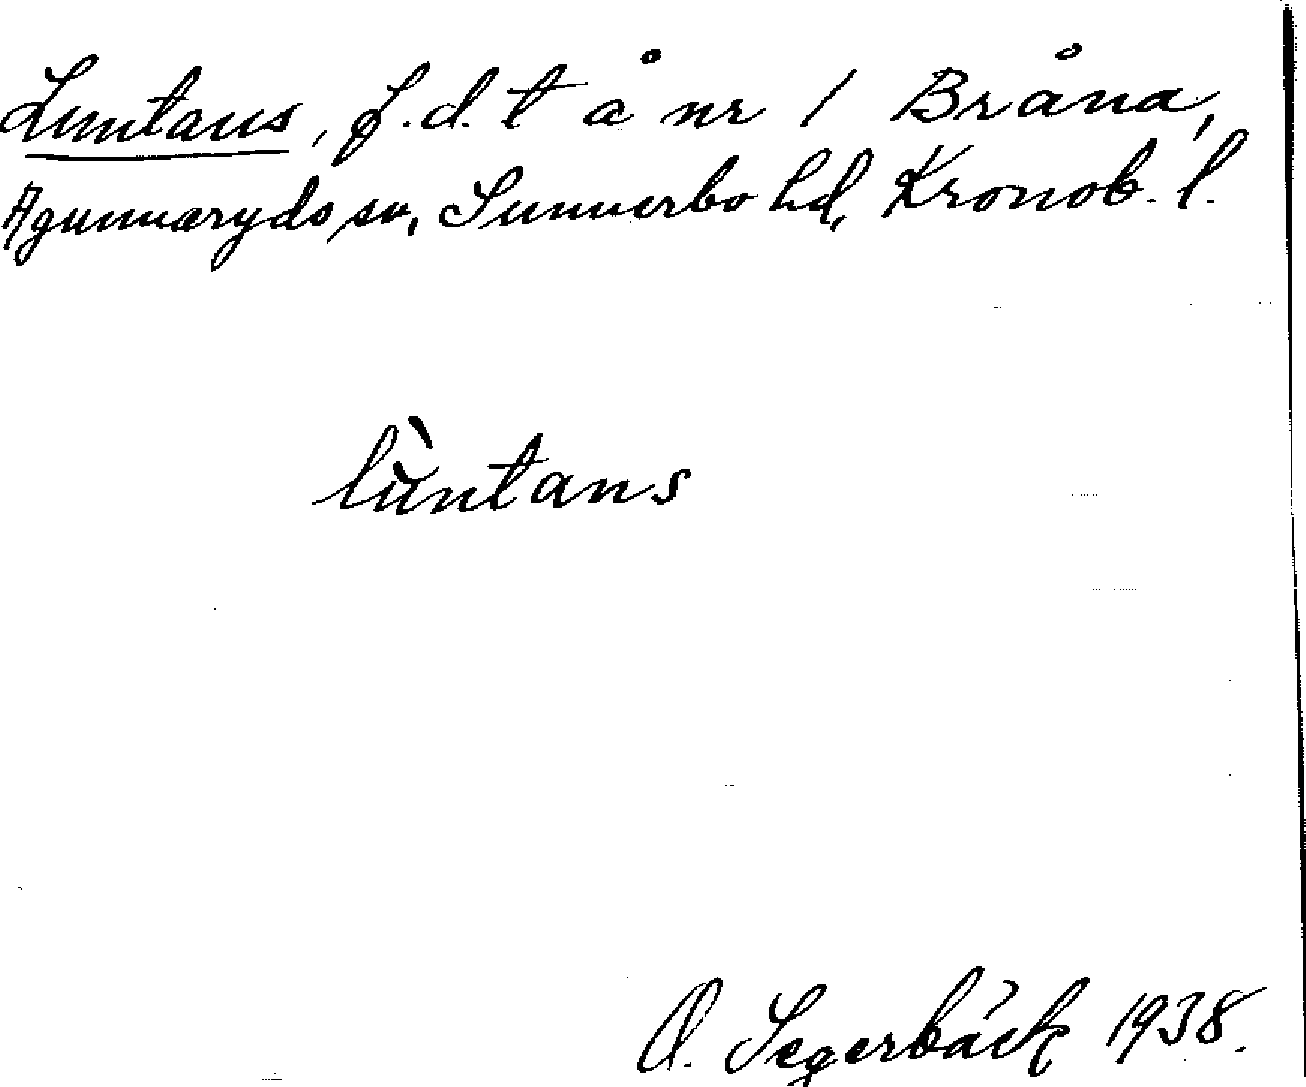 Luntans, f.d. t å nr 1 Bråna,
Agunnaryds sn, Sunnerbo hd, Kronob. l.
lùntans
O. Segerbäck 1938.